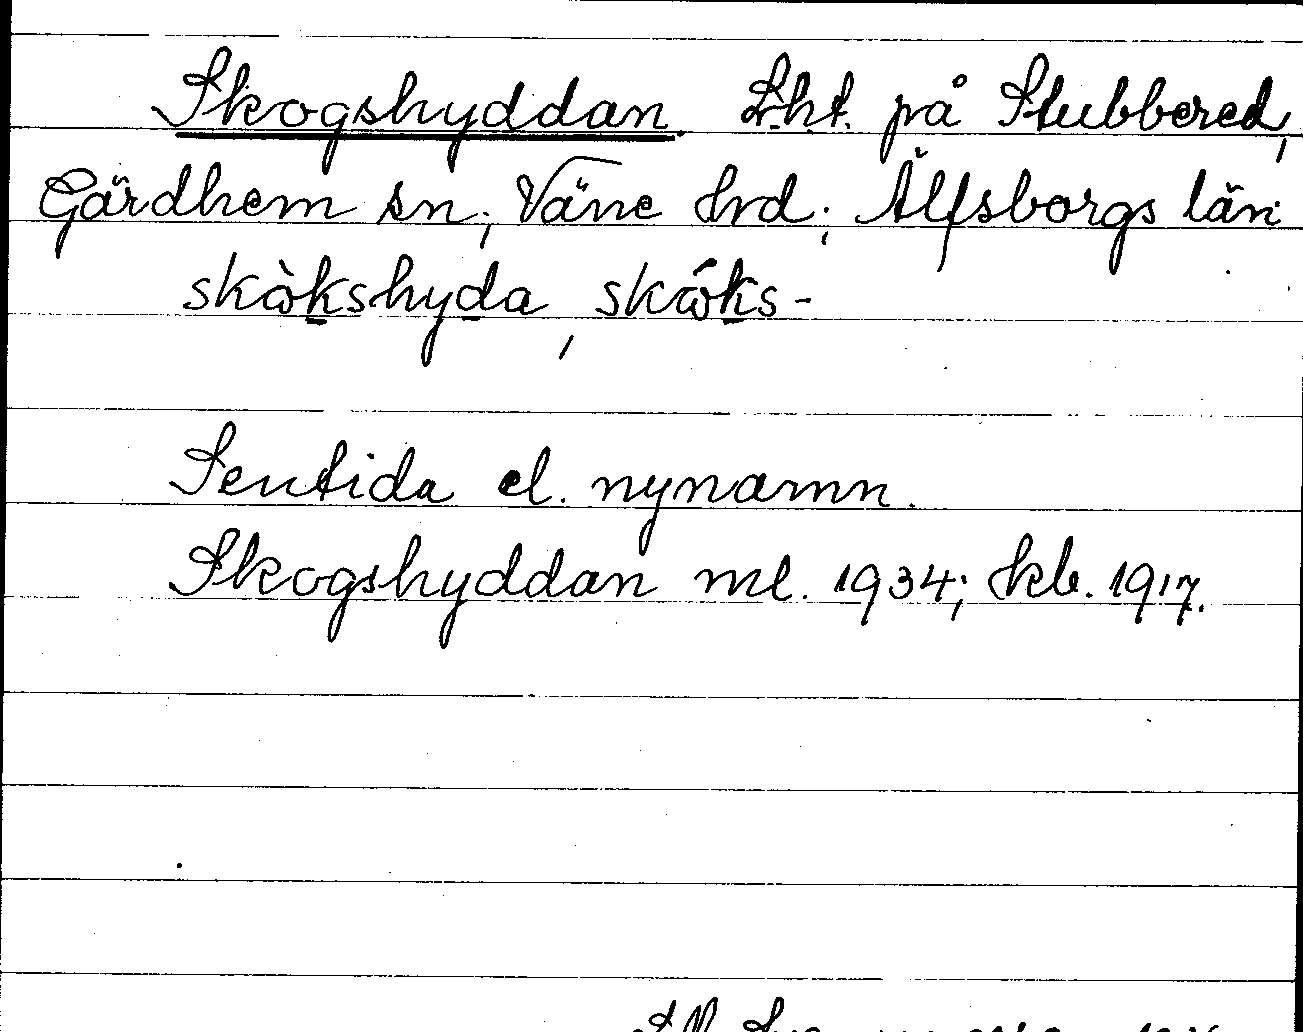 Skogshyddan. Lht. på Stubbered,
Gärdhem sn, Väne hrd; Älfsborgs län
skòkshyda, skóks-
Sentida el. nynamn.
Skogshyddan ml. 1934; kb. 1917.